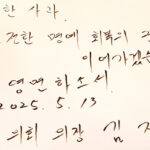 한 사과.
전한 명예 회복의 
이어가겠
영면하소서.
2025. 5. 13
의회 의장 김